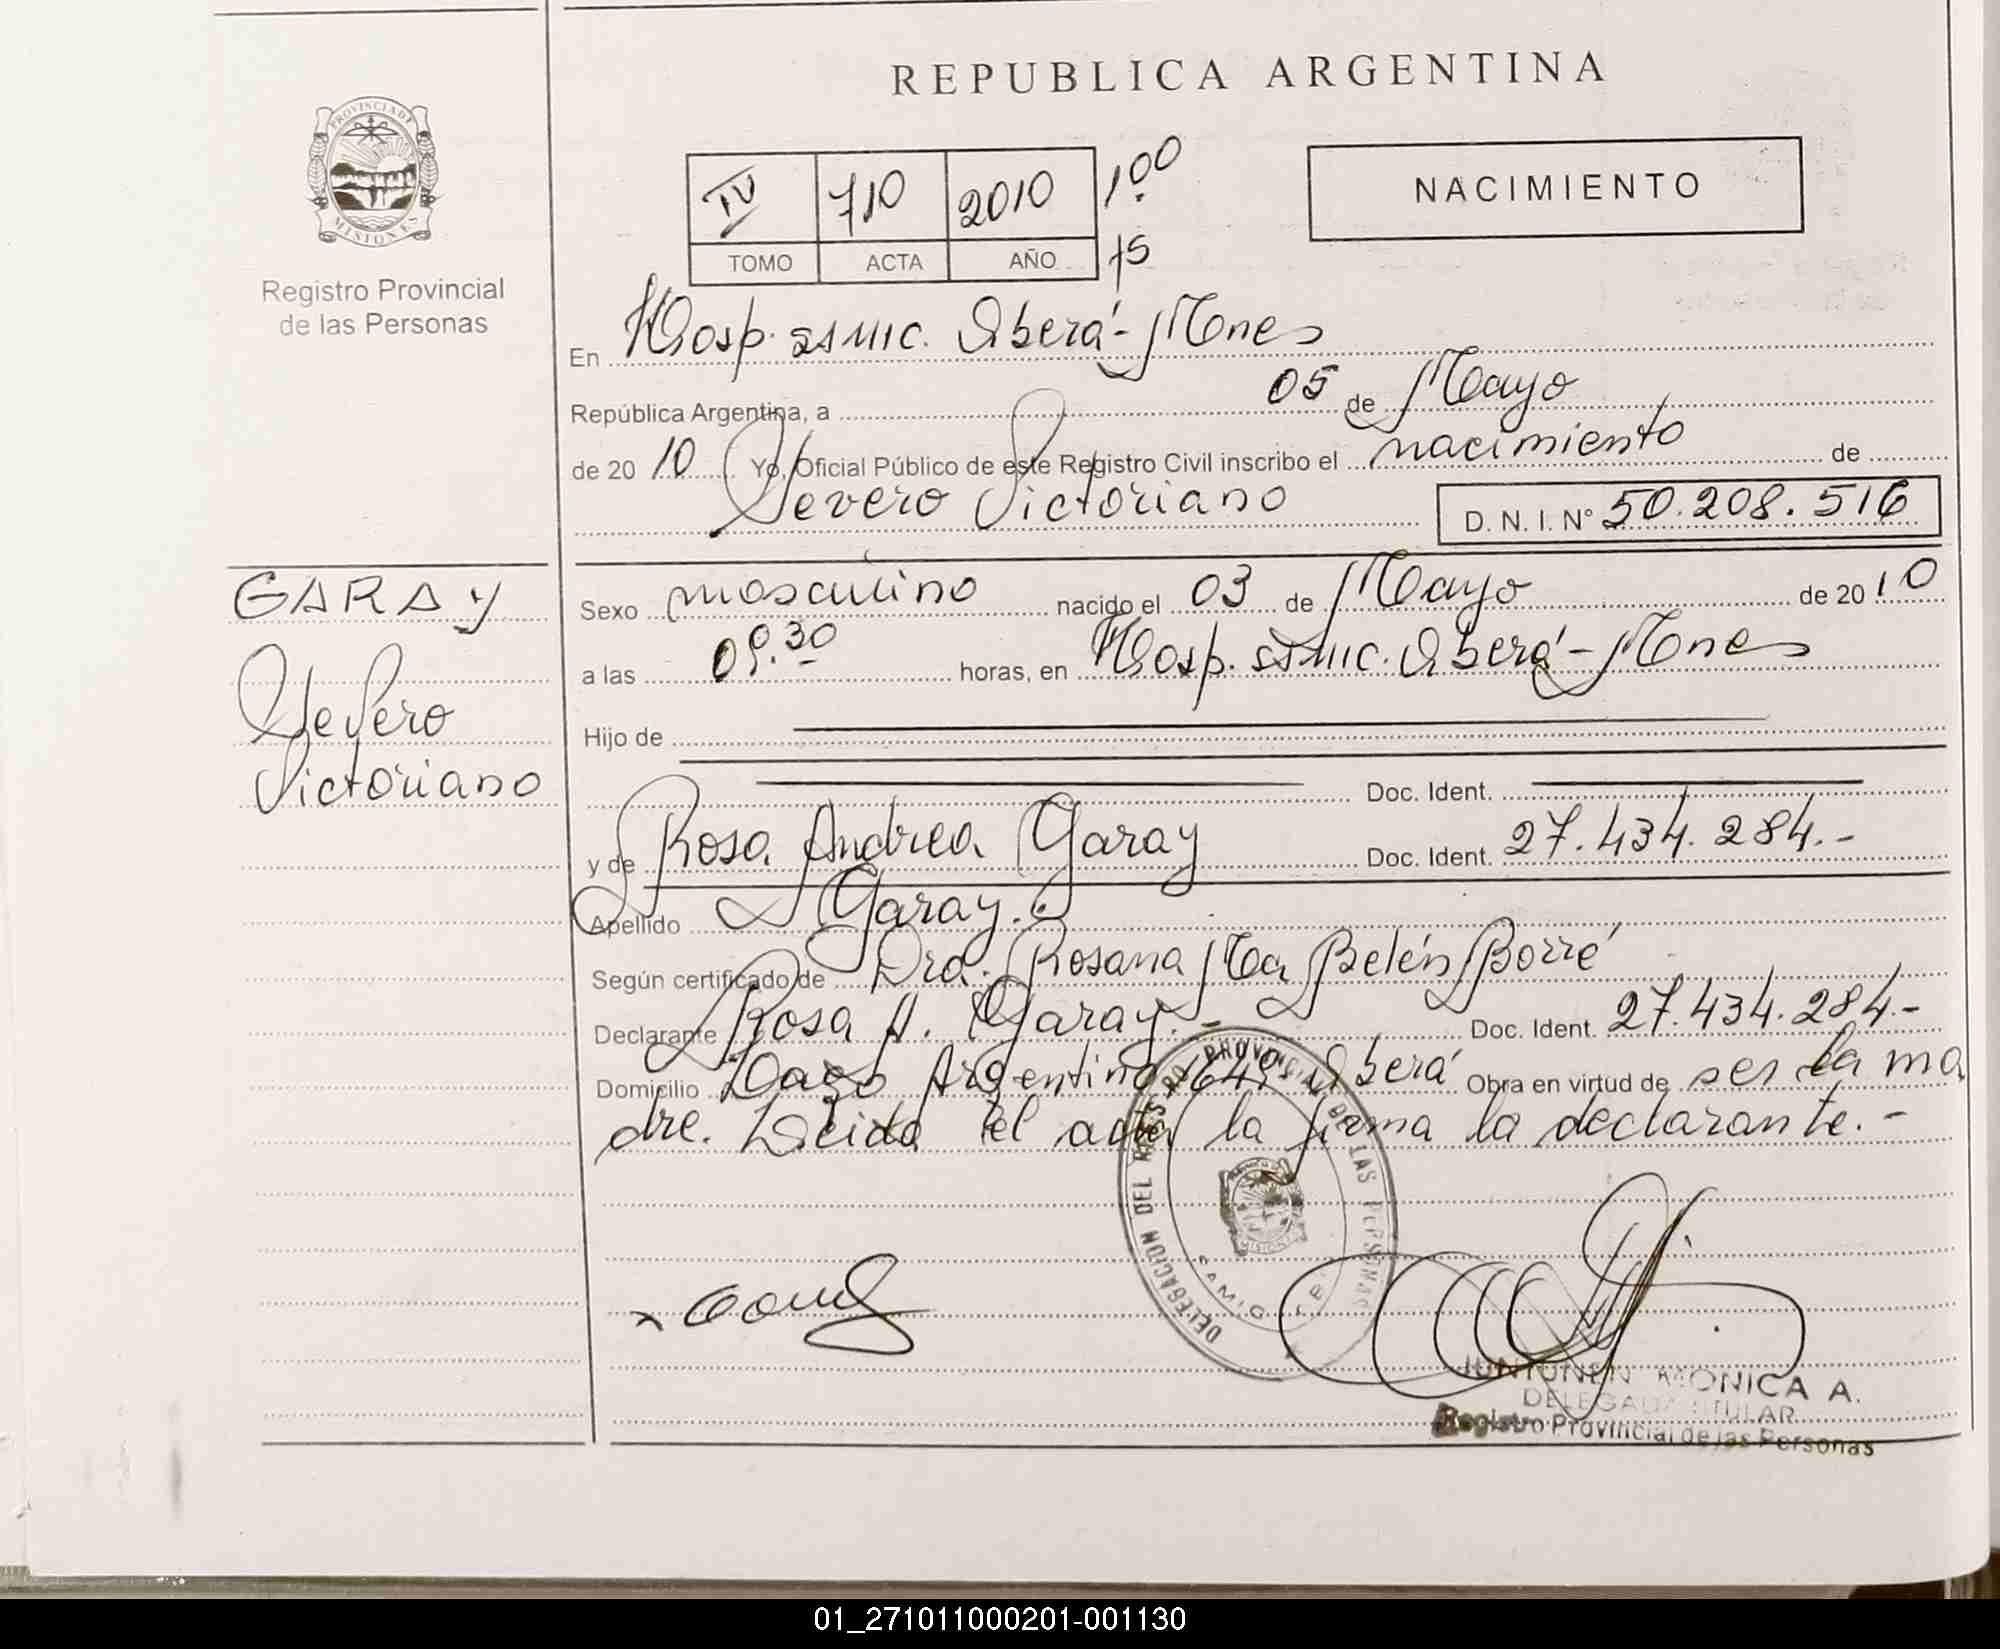 REPUBLICA ARGENTINA
PROVINCIA DE
MISIONES
Registro Provincial
de las Personas
IV 710 2010 100
TOMO ACTA AÑO 75
NACIMIENTO
En Hosp. Oberá - Mnes
República Argentina, a 05 de Mayo
de 20 10 Yo, Oficial Público de este Registro Civil inscribo el nacimiento de
Severo Victoriano D. N. I. Nº 50.208.516
GARAY
Severo
Victoriano
Sexo masculino nacido el 03 de Mayo de 2010
a las 09.30 horas, en Hosp. Oberá - Mnes
Hijo de
Doc. Ident.
y de Rosa Andrea Garay Doc. Ident. 27.434.284.-
Apellido Garay.
Según certificado de Dra. Rosana Ma Belén Borré
Declarante Rosa A. Garay.- Doc. Ident. 27.434.284.-
Domicilio Lago Argentino Oberá Obra en virtud de ser la ma
dre. Leida el acta la firma la declarante.-
DELEGACION DEL REG. PROVINCIAL DE LAS PERSONAS
MISIONES
JUNTUNEN MONICA A.
DELEGADA TITULAR
Registro Provincial de las Personas
01_271011000201-001130